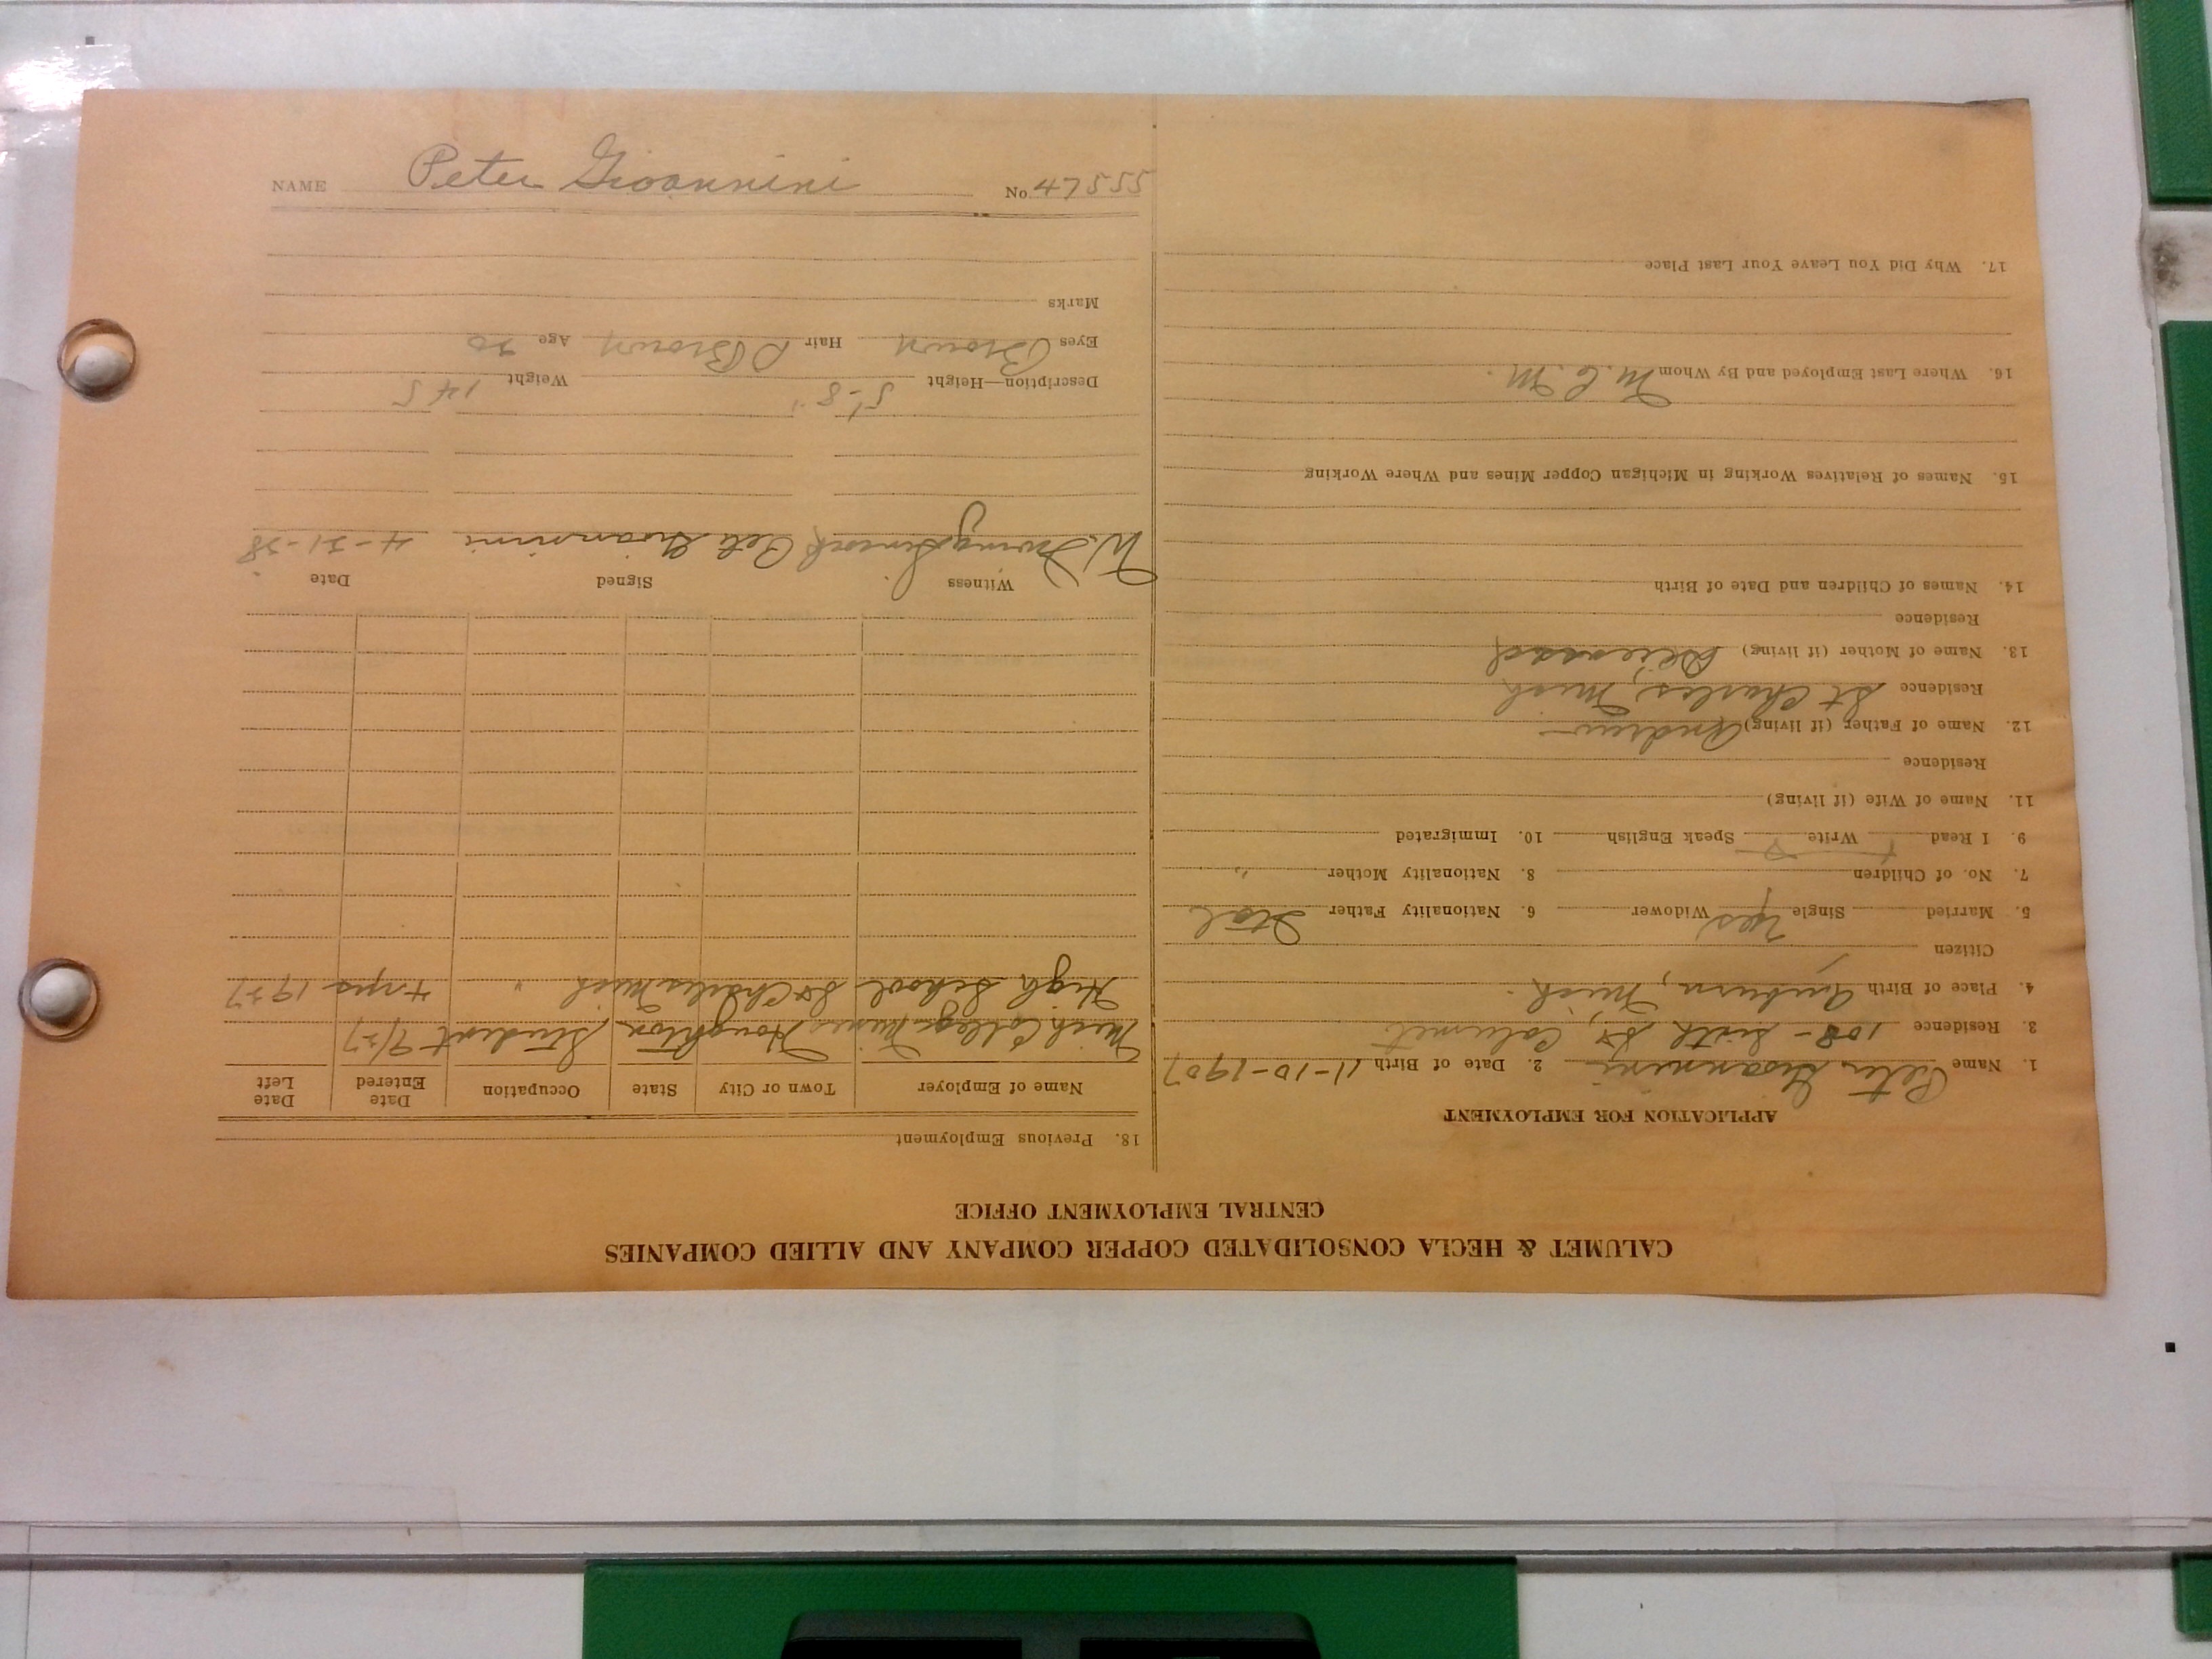 CALUMET & HECLA CONSOLIDATED COPPER COMPANY AND ALLIED COMPANIES
CENTRAL EMPLOYMENT OFFICE
APPLICATION FOR EMPLOYMENT
1. Name Peter Gioannini 2. Date of Birth 11-10-1907
3. Residence 108 - Sixth St, Calumet
4. Place of Birth Auburn, Mich.
Citizen
5. Married Single Yes Widower 6. Nationality Father Ital
7. No. of Children 8. Nationality Mother "
9. I Read Write Speak English 10. Immigrated
11. Name of Wife (if living)
Residence
12. Name of Father (if living) Andrew
Residence St Charles, Mich
13. Name of Mother (if living) Deceased
Residence
14. Names of Children and Date of Birth
15. Names of Relatives Working in Michigan Copper Mines and Where Working
16. Where Last Employed and By Whom M.C.M.
17. Why Did You Leave Your Last Place
18. Previous Employment
Name of Employer Town or City State Occupation Date Entered Date Left
Mich College Mines Houghton Student 9/27
High School St Charles Mich " 4 yrs 1927
Witness Signed Date
W. Irving Pete Gioannini 4-21-28
Description—Height 5'-8" Weight 145
Eyes Brown Hair D Brown Age 20
Marks
NAME Peter Gioannini No. 47555